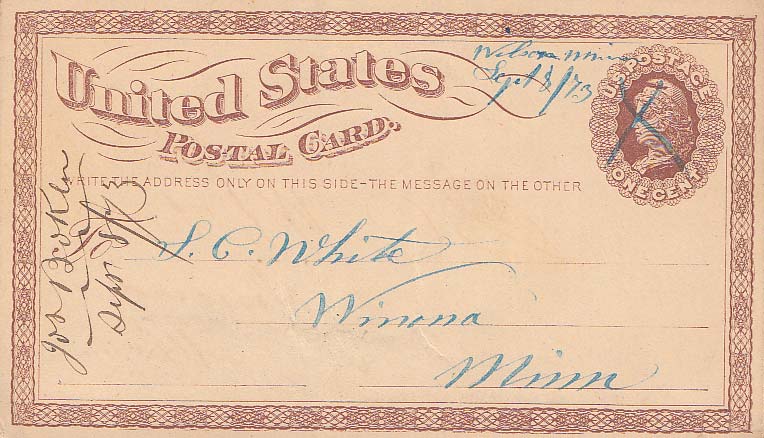 United States
POSTAL CARD.
Wilson Minn
Sept 8/73
U.S. POSTAGE
ONE CENT
WRITE THE ADDRESS ONLY ON THIS SIDE-THE MESSAGE ON THE OTHER
S. C. White
Winona
Minn
Sept 8/73